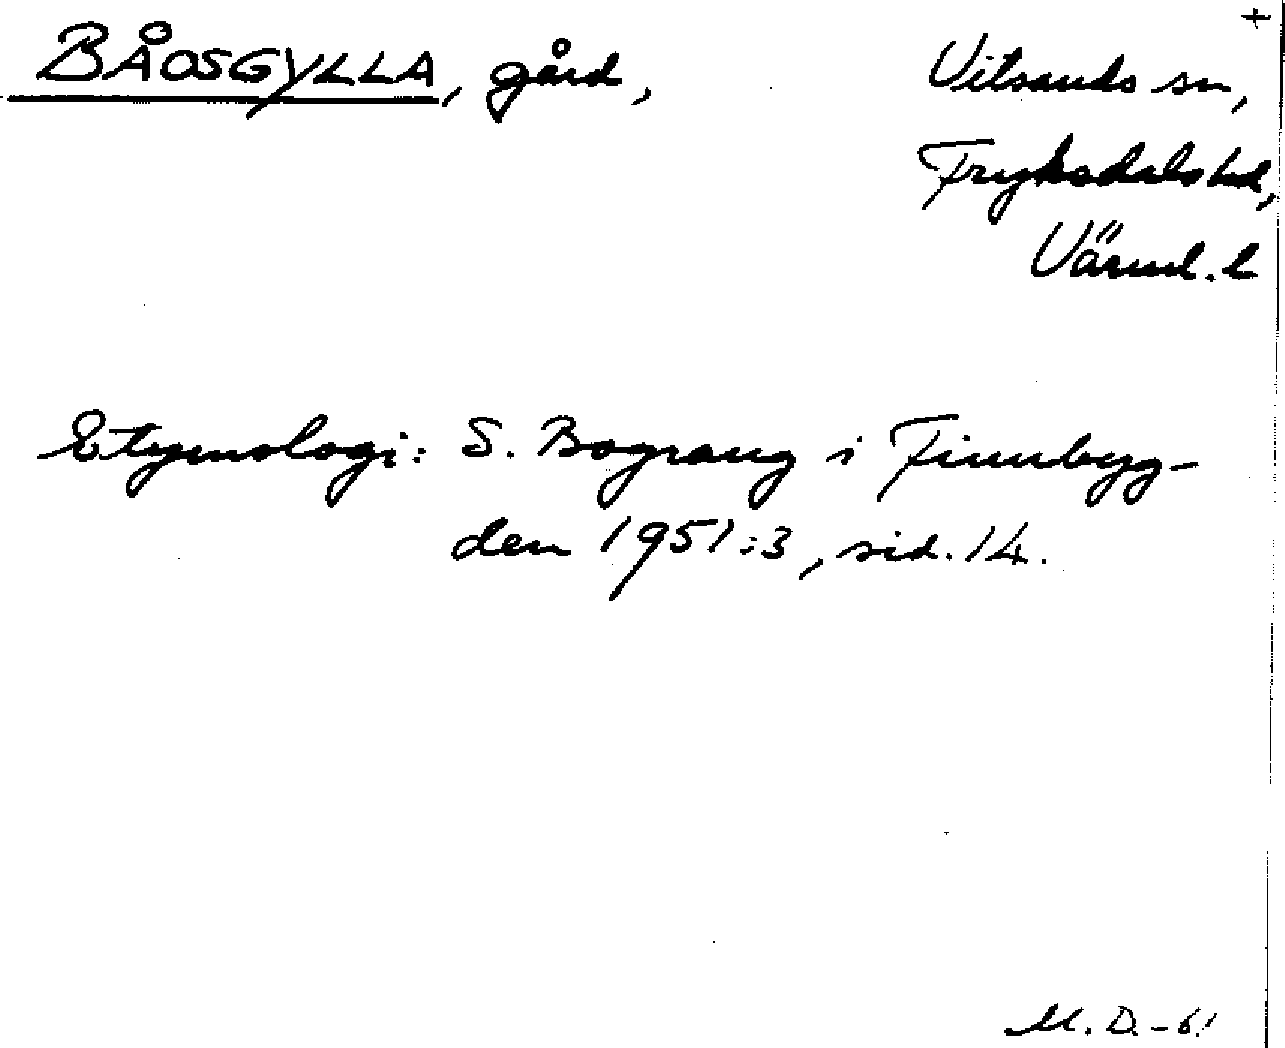 +
BÅOSGYLLA, gård, Vitsands sn,
Fryksdals hd,
Värml. l
Etymologi: S. Bograng i Finnbyg-
den 1951:3, sid. 14.
M. D. - 61